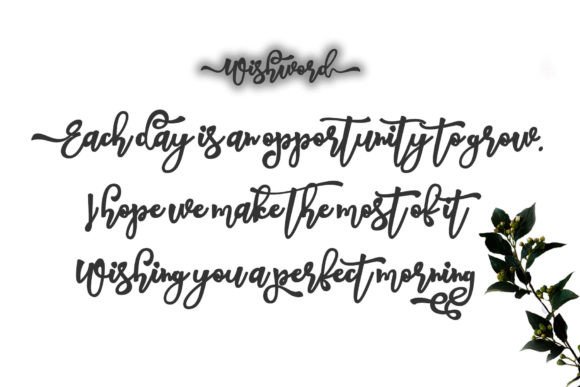 Wishword
Each day is an opportunity to grow.
I hope we make the most of it
Wishing you a perfect morning